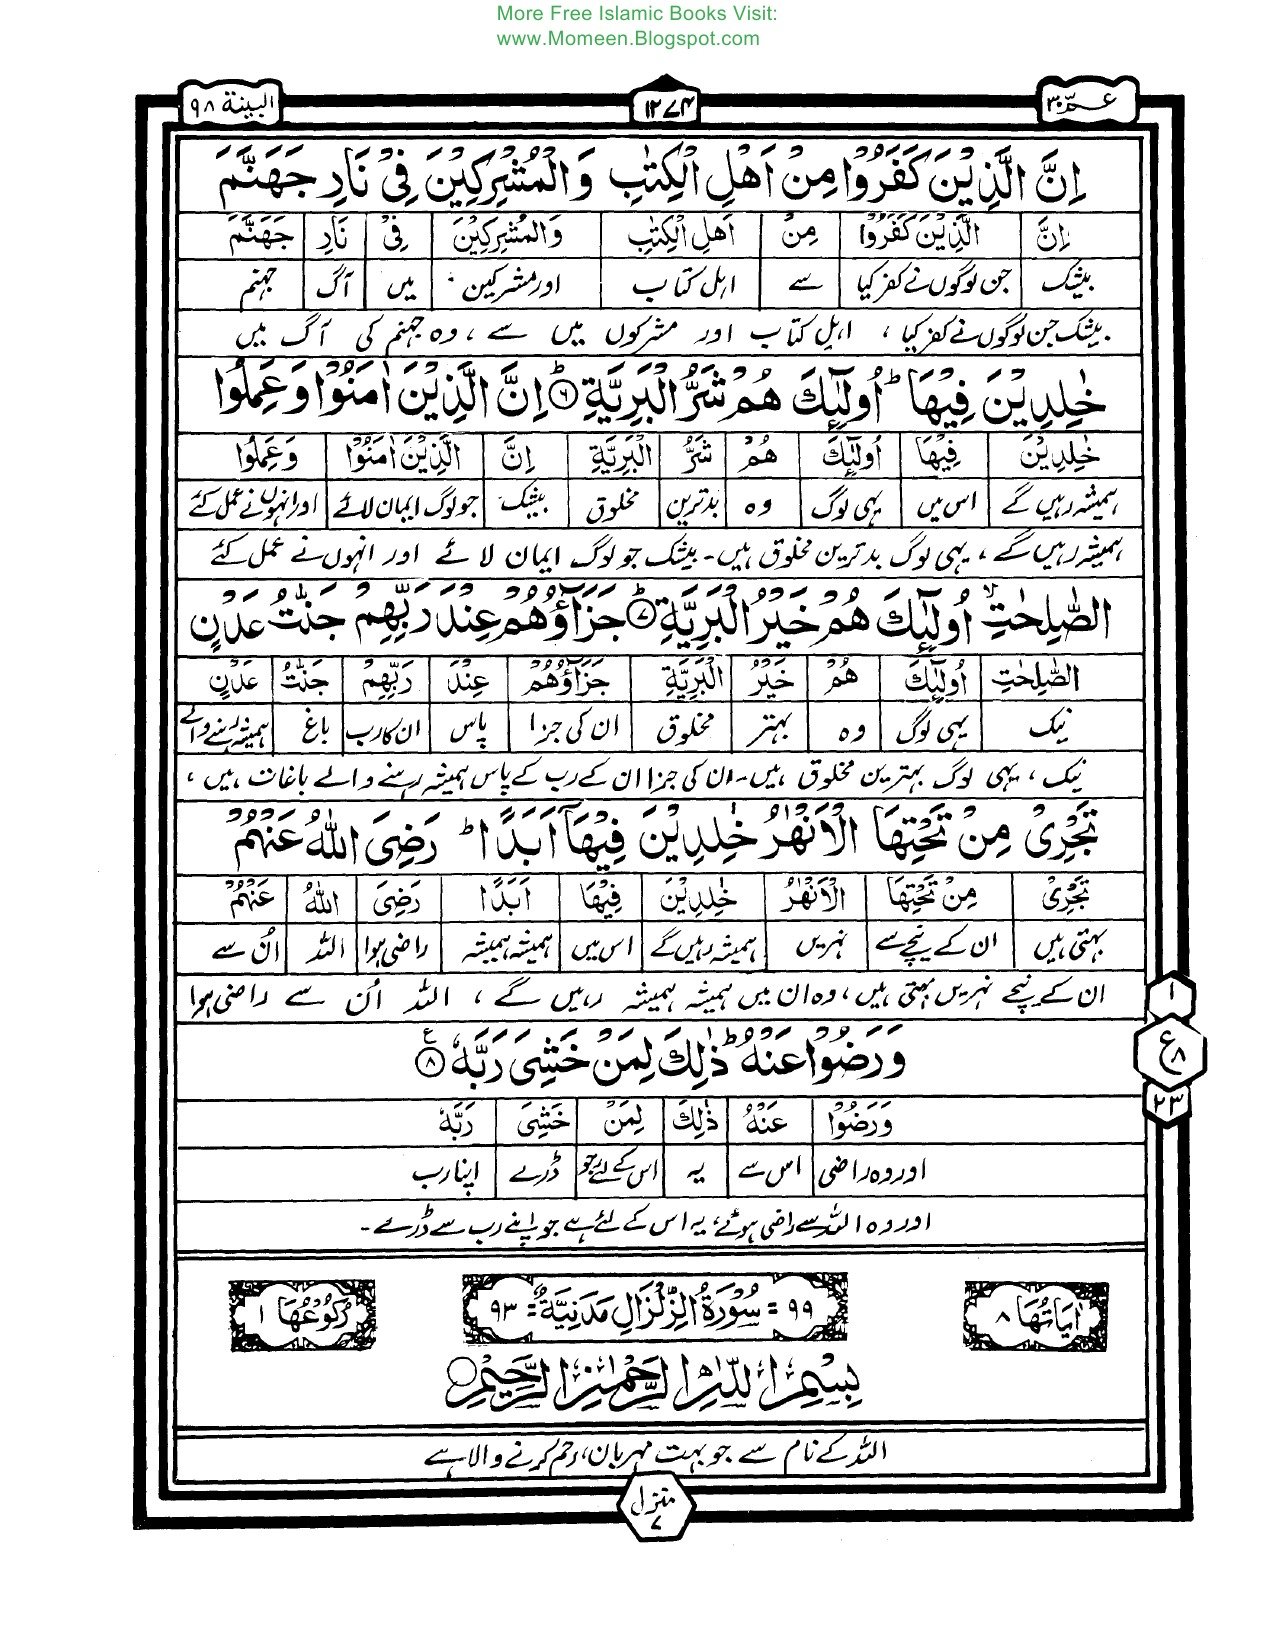 More Free Islamic Books Visit:
www.Momeen.Blogspot.com
عمّ ٣٠ ١٢٧۴ البینة ٩٨
اِنَّ الَّذِیْنَ كَفَرُوْا مِنْ اَهْلِ الْكِتٰبِ وَالْمُشْرِكِیْنَ فِیْ نَارِ جَهَنَّمَ
اِنَّ الَّذِیْنَ كَفَرُوْا مِنْ اَهْلِ الْكِتٰبِ وَالْمُشْرِكِیْنَ فِیْ نَارِ جَهَنَّمَ
بیشک جن لوگوں نے کفر کیا سے اہل کتاب اور مشرکین میں آگ جہنم
بیشک جن لوگوں نے کفر کیا ، اہلِ کتاب اور مشرکوں میں سے ، وہ جہنم کی آگ میں
خٰلِدِیْنَ فِیْهَا ؕ اُولٰٓئِكَ هُمْ شَرُّ الْبَرِیَّةِ ؕ﴿۶﴾ اِنَّ الَّذِیْنَ اٰمَنُوْا وَعَمِلُوا
خٰلِدِیْنَ فِیْهَا اُولٰٓئِكَ هُمْ شَرُّ الْبَرِیَّةِ اِنَّ الَّذِیْنَ اٰمَنُوْا وَعَمِلُوا
ہمیشہ رہیں گے اس میں یہی لوگ وہ بدترین مخلوق بیشک جو لوگ ایمان لائے اور انہوں نے عمل کئے
ہمیشہ رہیں گے ، یہی لوگ بدترین مخلوق ہیں۔ بیشک جو لوگ ایمان لائے اور انہوں نے عمل کئے
الصّٰلِحٰتِ ۙ اُولٰٓئِكَ هُمْ خَیْرُ الْبَرِیَّةِ ؕ﴿۷﴾ جَزَآؤُهُمْ عِنْدَ رَبِّهِمْ جَنّٰتُ عَدْنٍ
الصّٰلِحٰتِ اُولٰٓئِكَ هُمْ خَیْرُ الْبَرِیَّةِ جَزَآؤُهُمْ عِنْدَ رَبِّهِمْ جَنّٰتُ عَدْنٍ
نیک یہی لوگ وہ بہتر مخلوق ان کی جزا پاس ان کا رب باغ ہمیشہ رہنے والے
نیک ، یہی لوگ بہترین مخلوق ہیں۔ ان کی جزا ان کے رب کے پاس ہمیشہ رہنے والے باغات ہیں ،
تَجْرِیْ مِنْ تَحْتِهَا الْاَنْهٰرُ خٰلِدِیْنَ فِیْهَاۤ اَبَدًا ؕ رَضِیَ اللّٰهُ عَنْهُمْ
تَجْرِیْ مِنْ تَحْتِهَا الْاَنْهٰرُ خٰلِدِیْنَ فِیْهَا اَبَدًا رَضِیَ اللّٰهُ عَنْهُمْ
بہتی ہیں ان کے نیچے سے نہریں ہمیشہ رہیں گے اس میں ہمیشہ ہمیشہ راضی ہوا اللہ اُن سے
ان کے نیچے نہریں بہتی ہیں ، وہ ان میں ہمیشہ ہمیشہ رہیں گے ، اللہ اُن سے راضی ہوا
وَرَضُوْا عَنْهُ ؕ ذٰلِكَ لِمَنْ خَشِیَ رَبَّهٗ ﴿۸﴾ ع
١ ع ٨ ٢٣
وَرَضُوْا عَنْهُ ذٰلِكَ لِمَنْ خَشِیَ رَبَّهٗ
اور وہ راضی اس سے یہ اس کے لئے جو ڈرے اپنا رب
اور وہ اللہ سے راضی ہوئے، یہ اس کے لئے ہے جو اپنے رب سے ڈرے۔
اٰیَاتُهَا ٨ ٩٩ = سُوْرَةُ الزِّلْزَالِ مَدَنِیَّةٌ = ٩٣ رُكُوْعُهَا ١
بِسْمِ اللّٰهِ الرَّحْمٰنِ الرَّحِیْمِ
اللہ کے نام سے جو بہت مہربان، رحم کرنے والا ہے
منزل ٧